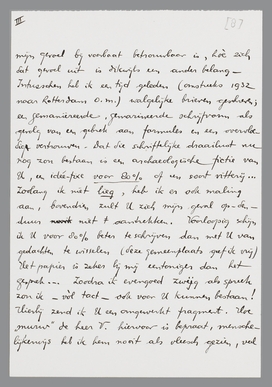 III [3?]
mijn gevoel bij voorbaat betrouwbaar is, hòe zich
dat gevoel uit is dikwijls een ander belang –
Intusschen heb ik een tijd geleden (omstreeks 1932
naar Rotterdam o.m.) walgelijke brieven geschreven;
en gemaniereerde, schrijfvorm als
gevolg van een gebrek aan formules en een
vertrouwen. Dat die schriftelijke draaikont nu
nog zou bestaan is een archaeologische fictie van
U, en idée-fixe voor 80% of een soort vitterij...
Zoolang ik niet lieg, heb ik er ook maling
aan, bovendien zult U zich mijn geval
niet t aantrekken. Voorloopig schijn
ik U voor 80% beter te schrijven dan met U van
gedachten te wisselen (deze gemeenplaats geef ik vrij)
Het papier is zeker bij mij eentoniger dan het
gesprek.... Zoodra ik evengoed zwijg als spreek
zou ik – vol tact – ook voor U kunnen bestaan!
Hierbij zend ik U een omgewerkt fragment. Hoe
"murw" de heer V. hiervoor is bepraat, mensche-
lijkerwijs heb ik hem nooit als vleesch gezien, wel